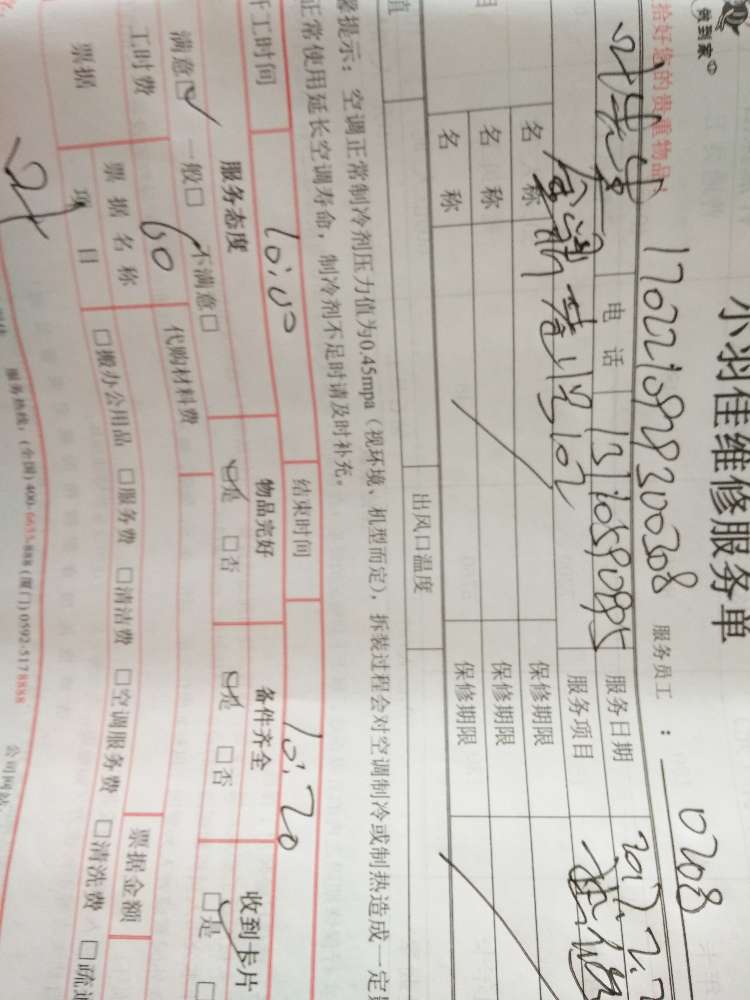 做到家
小羽佳维修服务单
拾好您的贵重物品!
服务员工 : 0208
电话 服务日期
名称 服务项目
名称 保修期限
名称 保修期限
保修期限
出风口温度
提示：空调正常制冷剂压力值为0.45mpa（视环境、机型而定），拆装过程会对空调制冷或制热造成一定
正常使用延长空调寿命，制冷剂不足时请及时补充。
工时间 10:00 结束时间 10:20
服务态度 物品完好 备件齐全 收到卡片
满意□ 一般□ 不满意□ □是 □否 □是 □否 □是 □
工时费 60 代购材料费
票据名称 票据金额
票据
项目 □搬办公用品 □服务费 □清洁费 □空调服务费 □清洗费 □疏通
服务热线：(全国) 400-6655-888 (厦门) 0592-5178888 公司网站